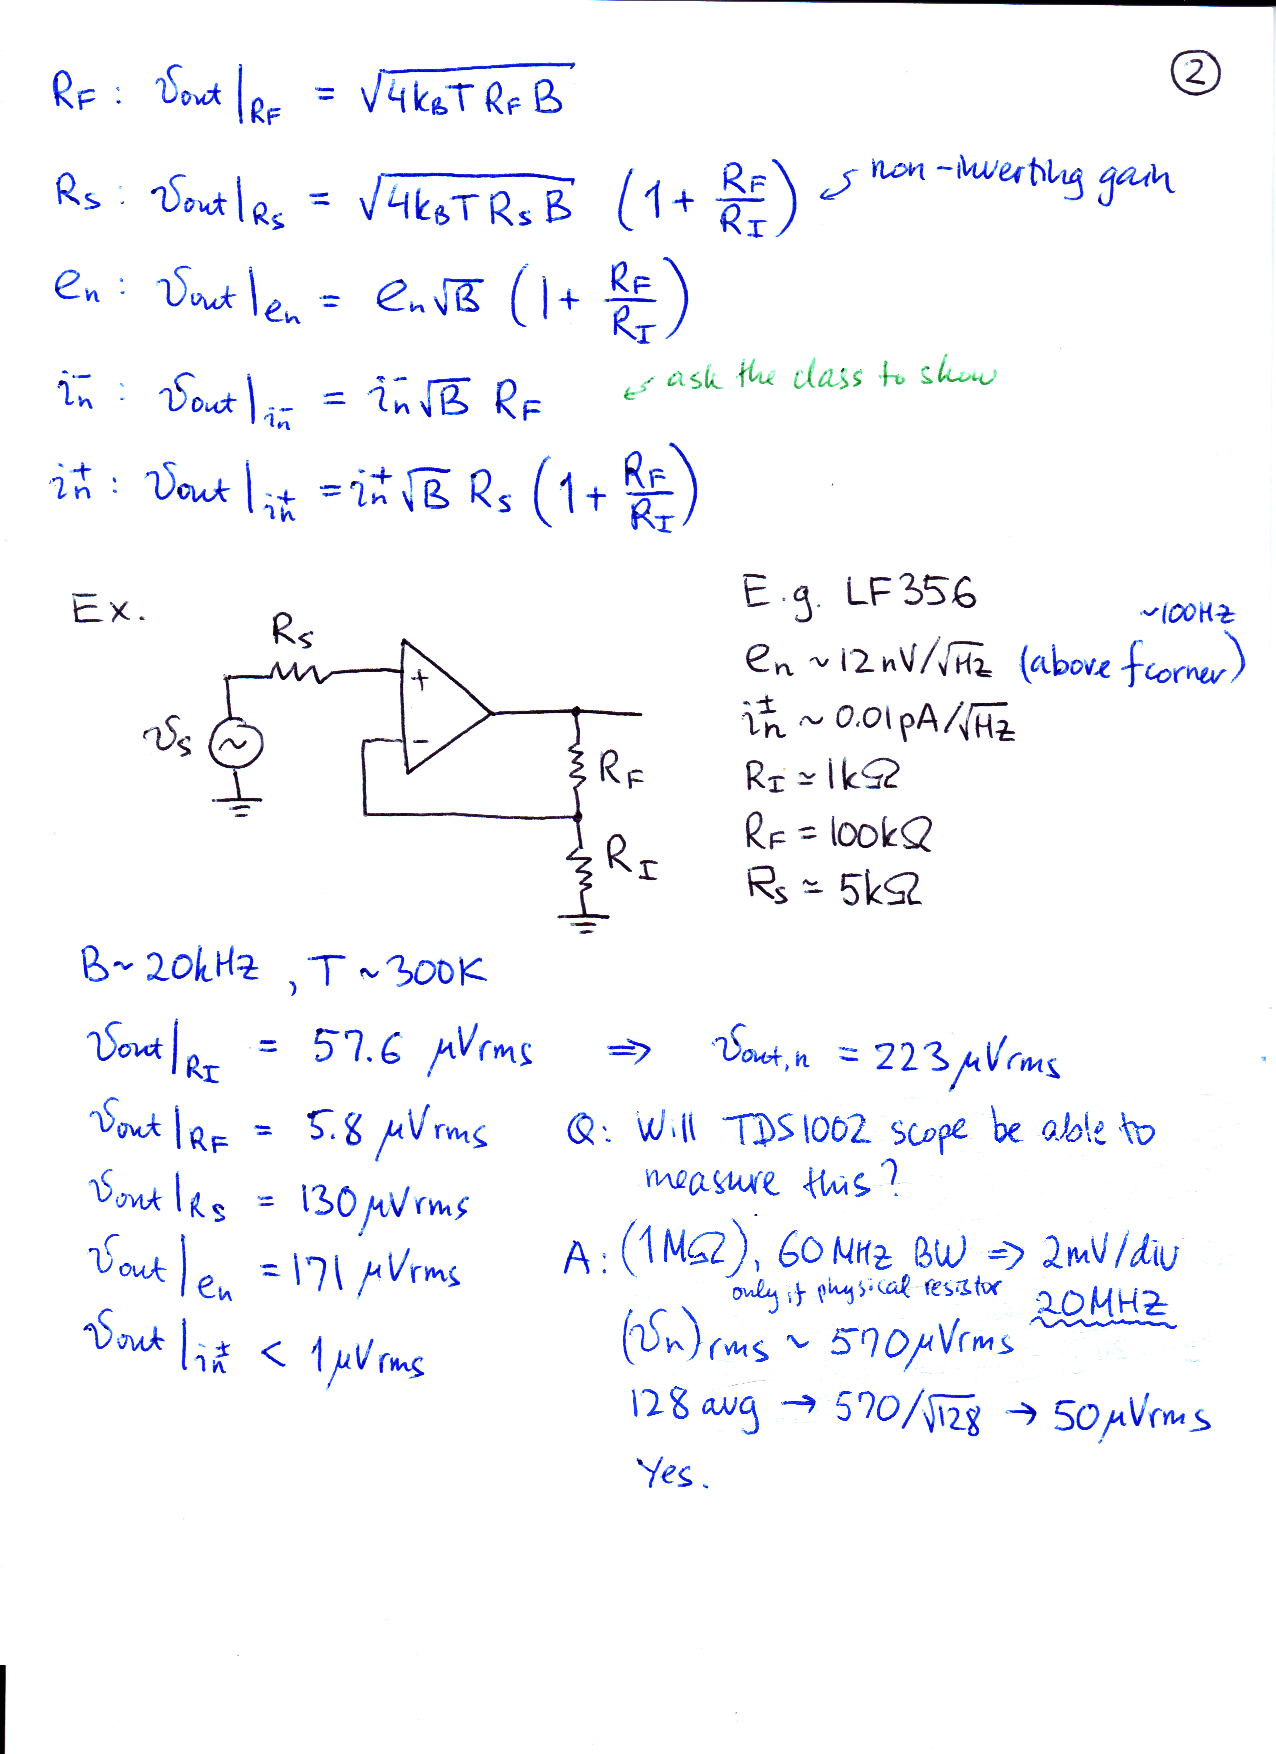 ②
R_F : v_out|_{R_F} = √(4k_BT R_F B)
R_s : v_out|_{R_s} = √(4k_BT R_s B) (1 + R_F/R_I) non-inverting gain
e_n : v_out|_{e_n} = e_n√B (1 + R_F/R_I)
i_n^- : v_out|_{i_n^-} = i_n^-√B R_F ask the class to show
i_n^+ : v_out|_{i_n^+} = i_n^+√B R_s (1 + R_F/R_I)
Ex.
R_s
+
v_s
-
R_F
R_I
E.g. LF356
~100Hz
e_n ~ 12nV/√Hz (above f_corner)
i_n^± ~ 0.01pA/√Hz
R_I ≃ 1kΩ
R_F = 100kΩ
R_s ≃ 5kΩ
B ~ 20kHz, T ~ 300K
v_out|_{R_I} = 57.6 μVrms ⇒ v_out,n = 223μVrms
v_out|_{R_F} = 5.8 μVrms
v_out|_{R_s} = 130μVrms
v_out|_{e_n} = 171 μVrms
v_out|_{i_n^±} < 1μVrms
Q: Will TDS1002 scope be able to
measure this?
A: (1MΩ), 60MHz BW ⇒ 2mV/div
only if physical resistor 20MHz
(v_n)rms ~ 570μVrms
128 avg → 570/√128 → 50μVrms
Yes.